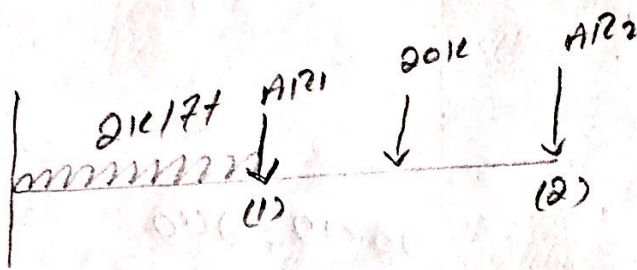 2K/Ft AR1 20K AR2
(1) (2)